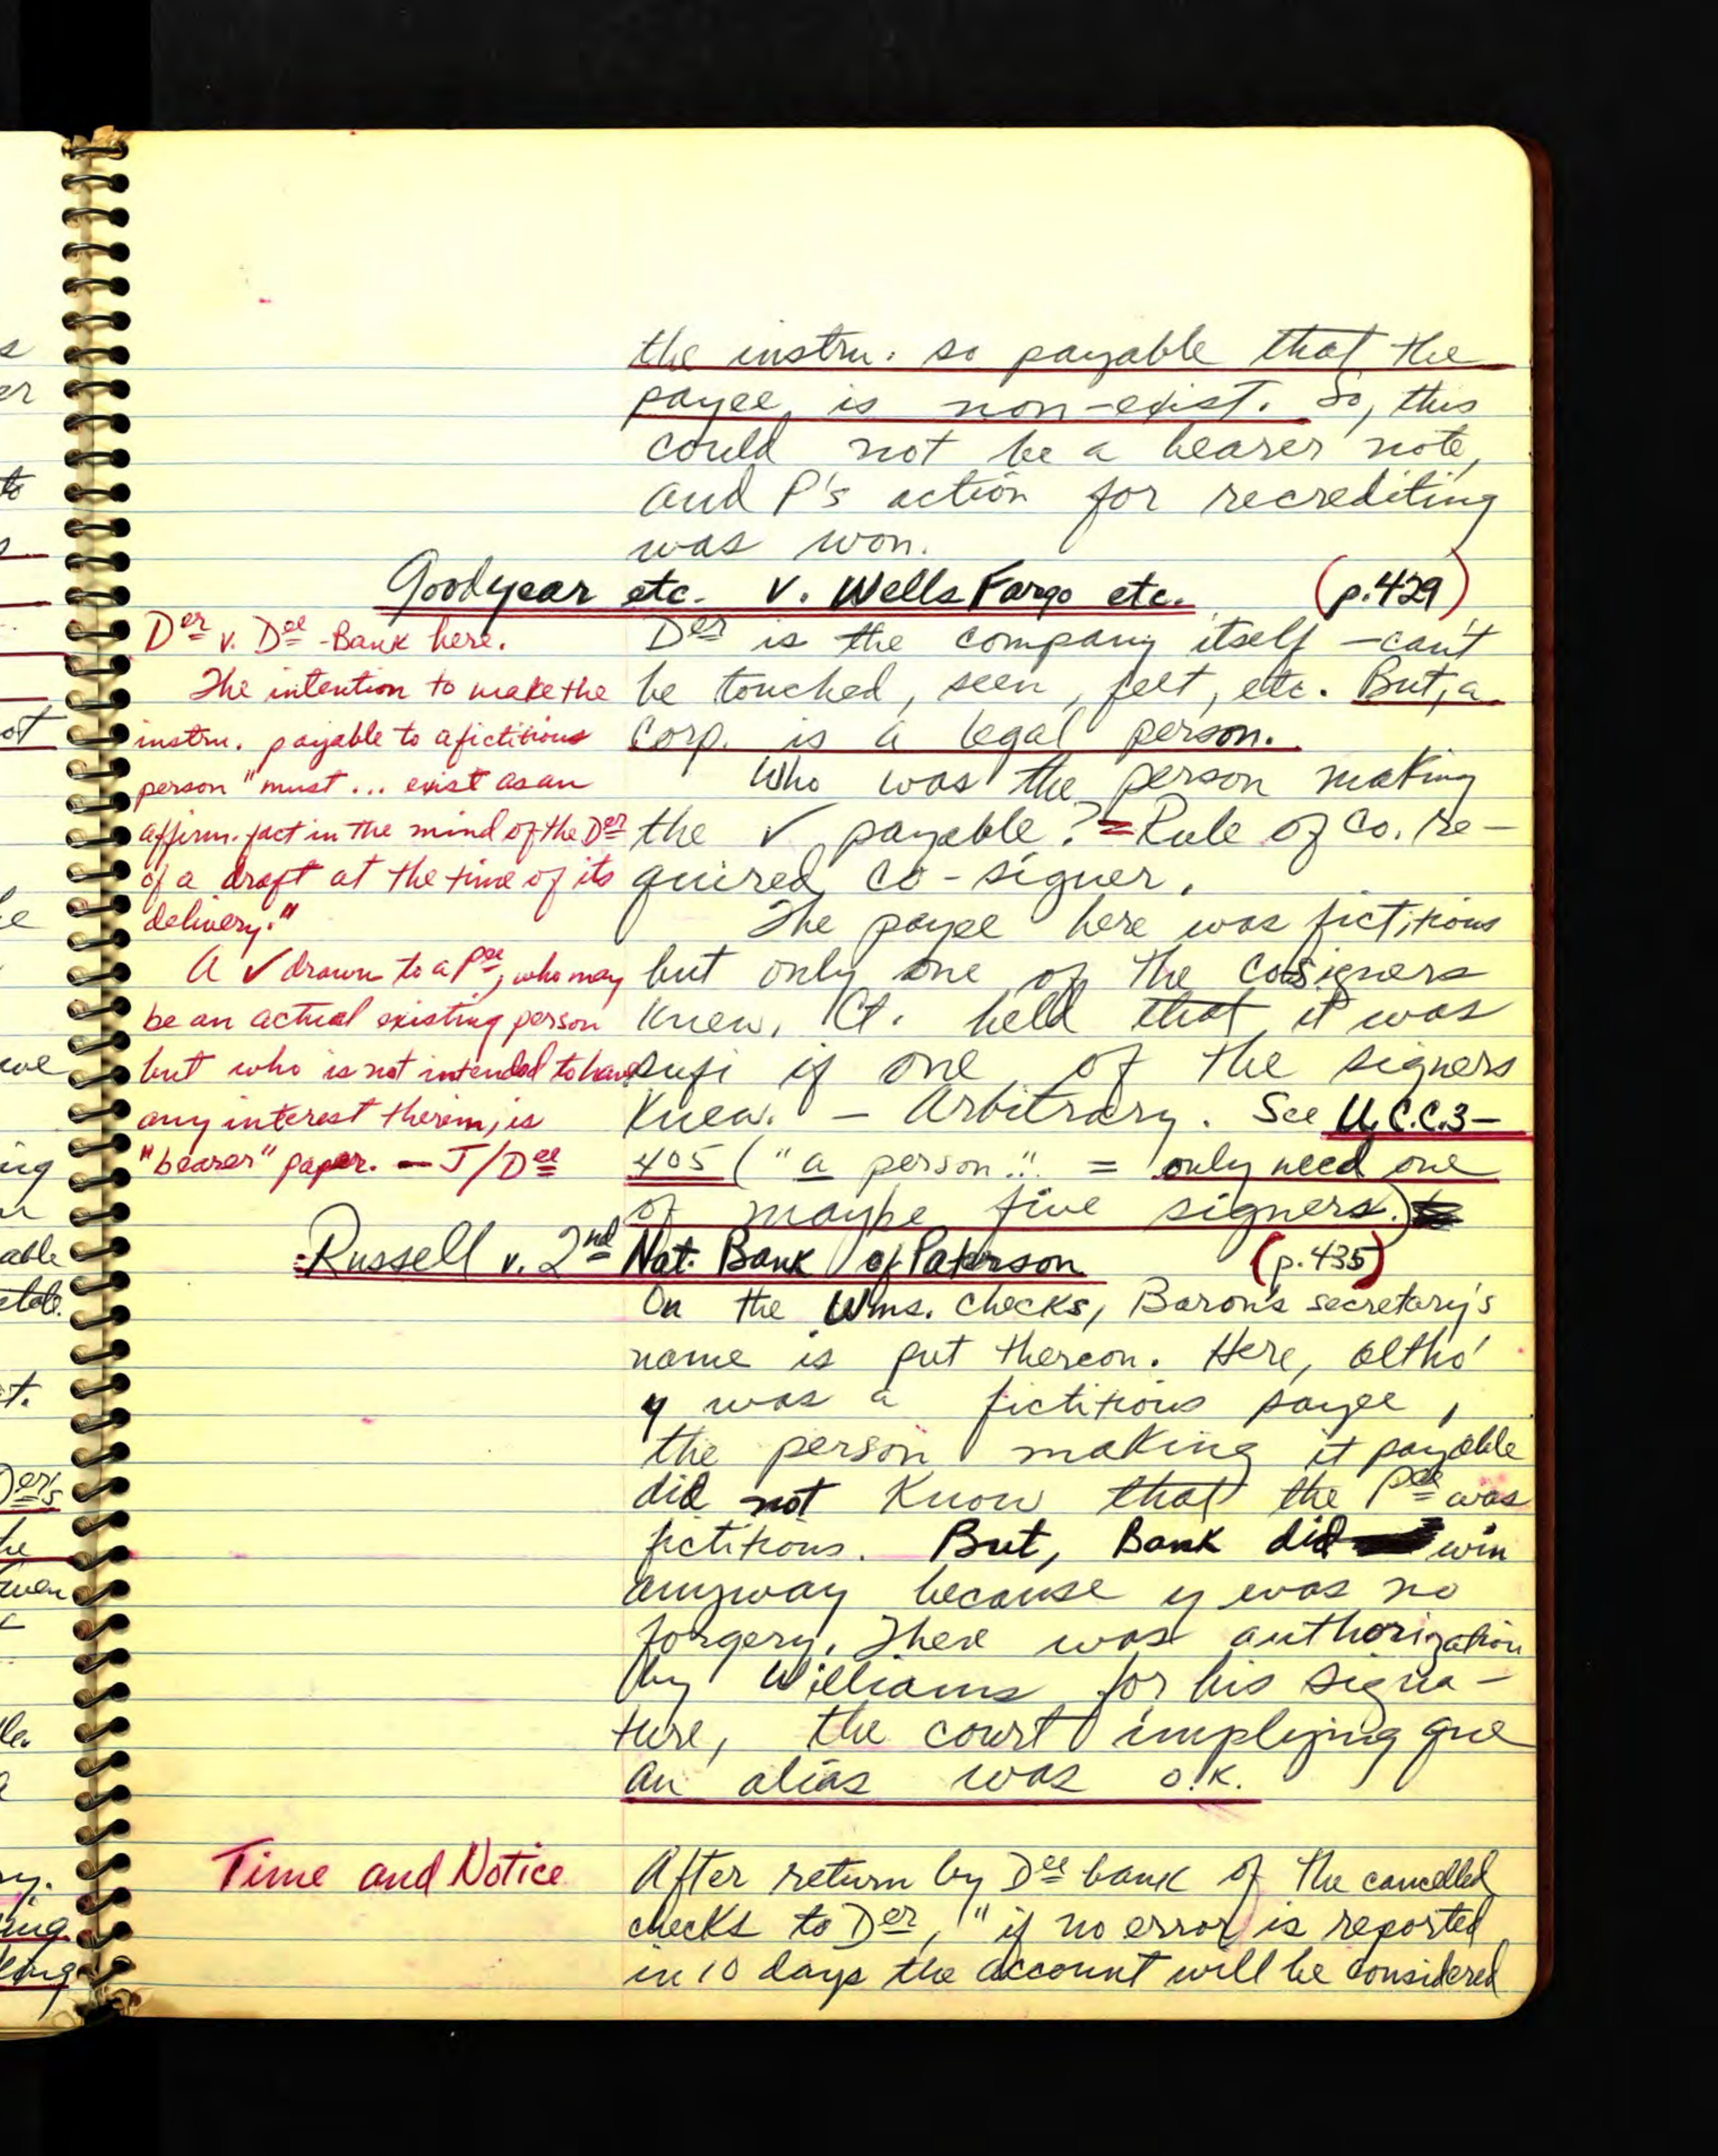 the instru. so payable that the
payee is non-exist. So, this
could not be a bearer note,
and P's action for recrediting
was won.
Goodyear etc. v. Wells Fargo etc. (p.429)
Der v. Dee - Bank here.
The intention to make the
instru. payable to a fictitious
person "must ... exist as an
affirm. fact in the mind of the Der
of a draft at the time of its
delivery."
A ✓ drawn to a Pee, who may
be an actual existing person
but who is not intended to have
any interest therein, is
"bearer" paper. — J/Dee
Der is the company itself — can't
be touched, seen, felt, etc. But, a
corp. is a legal person.
Who was the person making
the ✓ payable? = Rule of Co. re-
quired co-signer.
The payee here was fictitious
but only one of the cosigners
knew. Ct. held that it was
sufi if one of the signers
knew. — Arbitrary. See U.C.C. 3-
405 ("a person..." = only need one
of maybe five signers.)
Russell v. 2nd Nat. Bank of Paterson (p.435)
On the Wms. checks, Baron's secretary's
name is put thereon. Here, altho'
y was a fictitious payee,
the person making it payable
did not know that the Pee was
fictitious. But, Bank did win
anyway because y was no
forgery. There was authorization
by Williams for his signa-
ture, the court implying que
an alias was o.k.
Time and Notice
After return by Dee bank of the cancelled
checks to Der, "if no error is reported
in 10 days the account will be considered
s
er
to
ot
we
ing
able
t.
Der's
he
le.
a
ing.